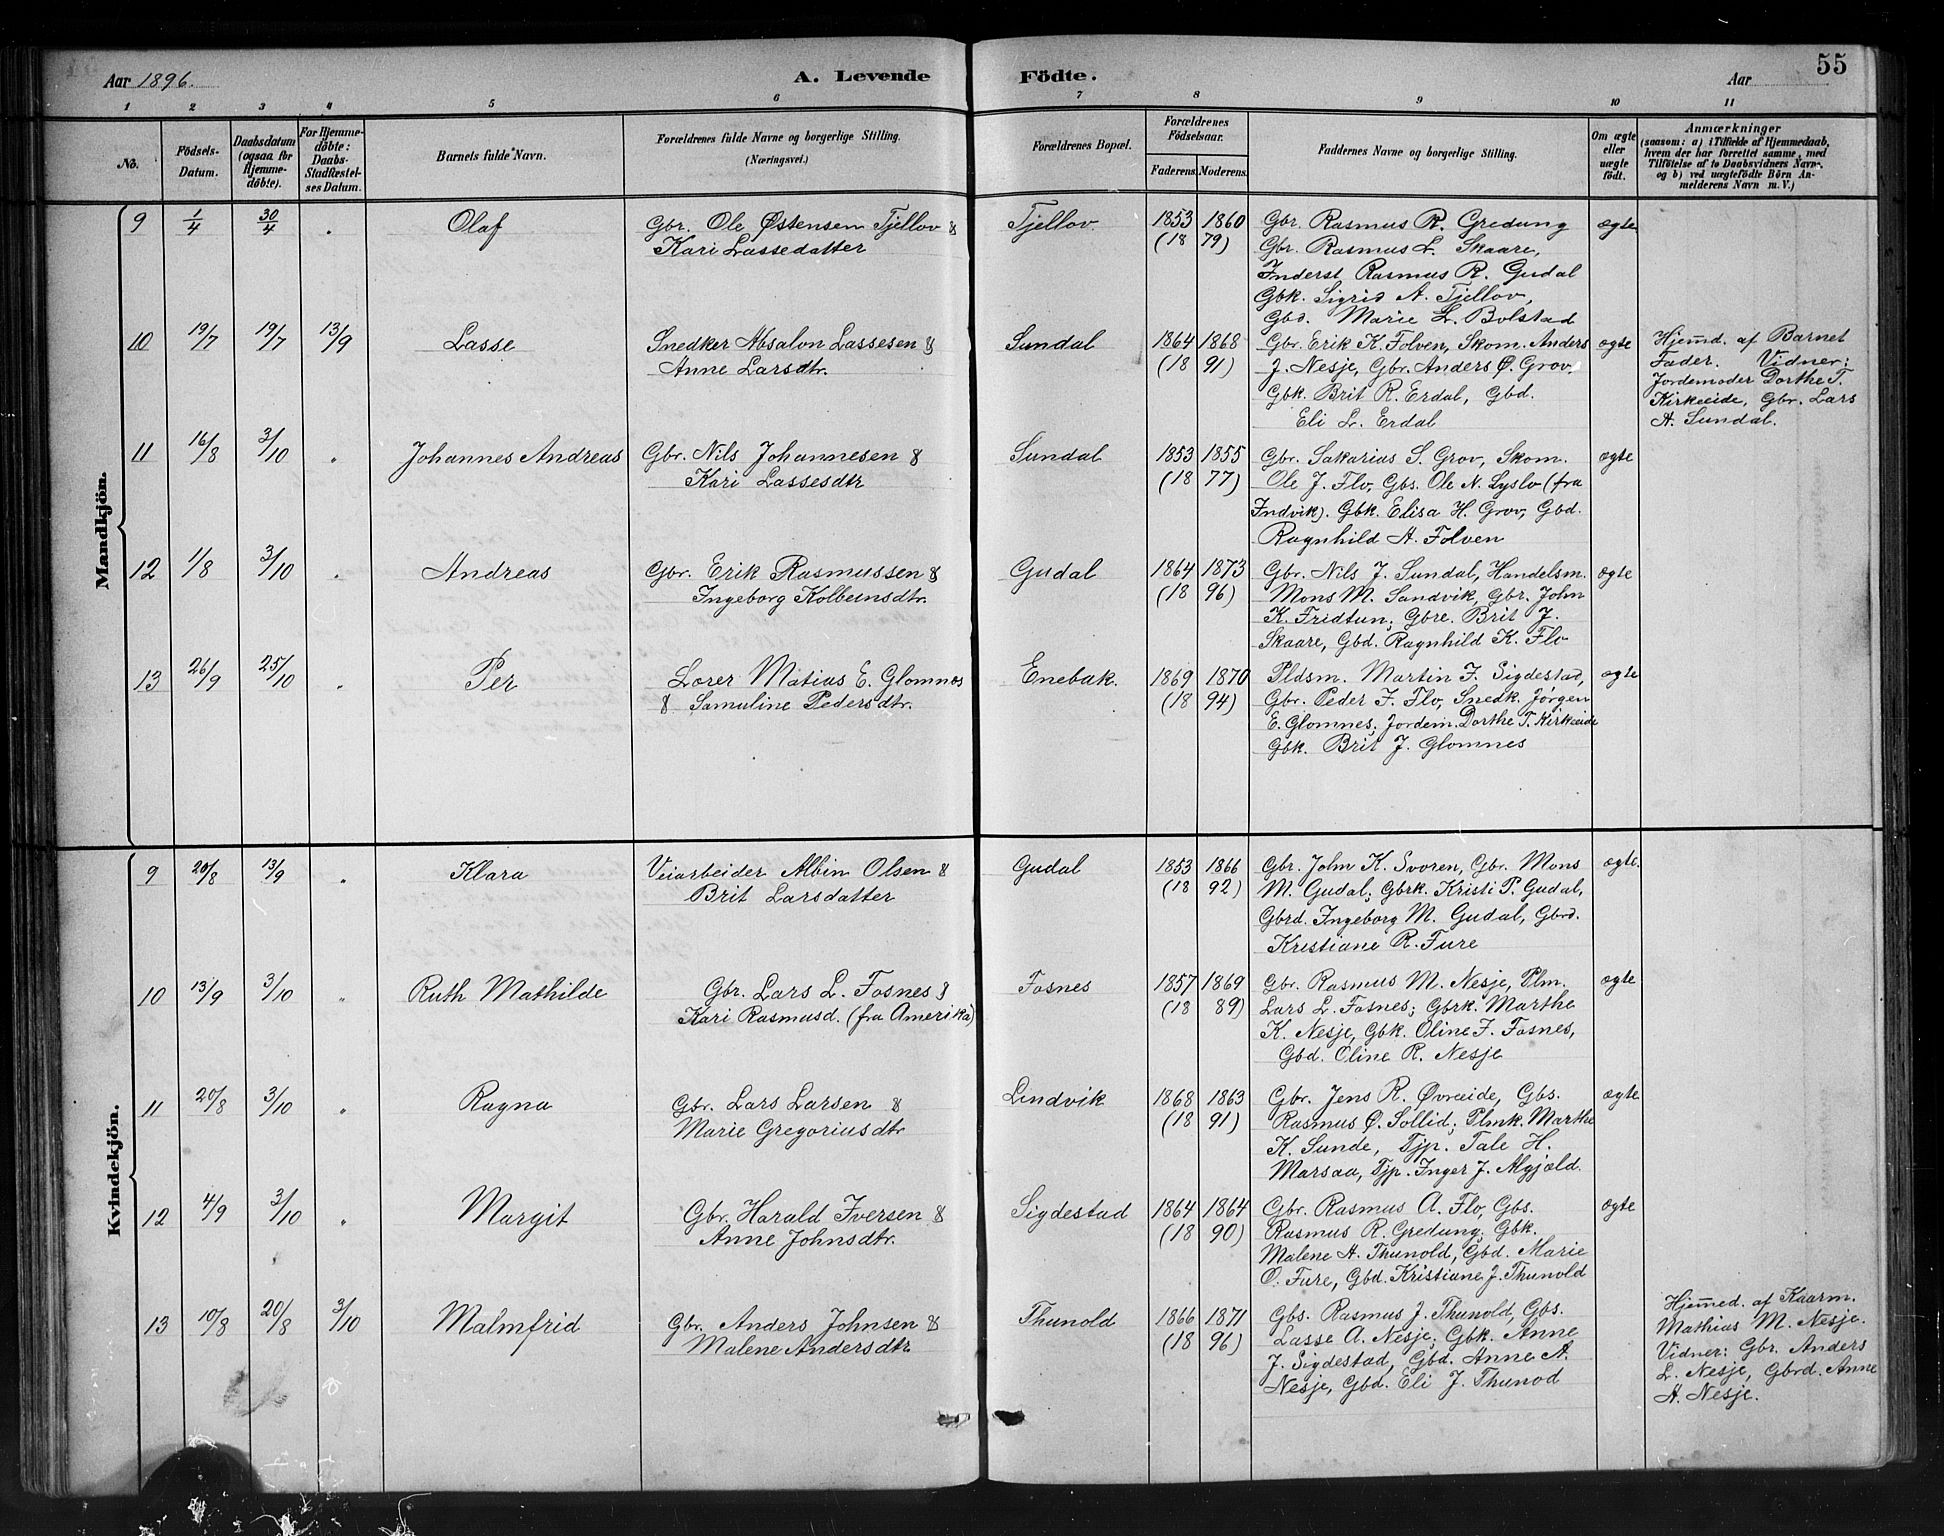 Aar 1896. A. Levende Födte. Aar 55
1 2 3 4 5 6 7 8 9 10 11
No. Födsels-Datum. Daabsdatum (ogsaa for Hjemmedöbte). For Hjemmedöbte: Daabs-Stadfæstelses Datum. Barnets fulde Navn. Forældrenes fulde Navne og borgerlige Stilling. (Næringsvei.) Forældrenes Bopæl. Forældrenes Födselsaar. Faderens. Moderens. Faddernes Navne og borgerlige Stilling. Om ægte eller uægte födt. Anmærkninger (saasom: a) i Tilfælde af Hjemmedaab, hvem der har forrettet samme, med Tilföielse af to Daabsvidners Navn-, og b) ved uægtefödte Börn Anmelderens Navn m. V.)
Mandkjön.
9 1/4 30/4 " Olaf Gbr. Ole Østensen Tjellov & Tjellov. 1853 1860 Gbr Rasmus R. Gredung ægte
Kari Lassedatter (18 79) Gbr. Rasmus L. Skaare,
Inderst Rasmus R. Gudal
Gbk. Sigrid A. Tjellov,
Gbd. Marie L. Bolstad
10 19/7 19/7 13/9 Lasse Snedker Absalon Lassesen & Sundal 1864 1868 Gbr. Erik K. Folven, Skom. Anders ægte Hjemd. af Barnet
Anne Larsdtr. (18 91) J. Nesje, Gbr. Anders Ø. Grov. Fader. Vidner:
Gbk. Brit R. Erdal, Gbd. Jordemoder Dorthe T.
Eli L. Erdal Kirkeeide, Gbr. Lars
A. Sundal.
11 16/8 3/10 " Johannes Andreas Gbr. Nils Johannesen & Sundal 1853 1855 Gbr. Sakarias S. Grov, Skom. ægte
Kari Lassesdtr (18 77) Ole J. Flo, Gbs. Ole N. Lyslo (fra
Indvik). Gbk. Elisa H. Grov, Gbd.
Ragnhild A. Folven
12 1/8 3/10 " Andreas Gbr. Erik Rasmussen & Gudal 1864 1873 Gbr. Nils J. Sundal, Handelsm. ægte
Ingeborg Kolbeinsdtr. (18 96) Mons M. Sandvik, Gbr. John
K. Fridtun; Gbre. Brit J.
Skaare, Gbd. Ragnhild K. Flo
13 26/9 25/10 " Per Lærer Matias E. Glomnes Enebak. 1869 1870 Pldsm. Martin F. Sigdestad, ægte
& Samuline Pedersdtr. (18 94) Gbr. Peder F. Flo, Snedk. Jørgen
E. Glomnes; Jordem. Dorthe T. Kirkeeide
Gbk. Brit J. Glomnes
Kvindekjön.
9 20/8 13/9 " Klara Veiarbeider Albin Olsen & Gudal 1853 1866 Gbr. John K. Svoren, Gbr. Mons ægte.
Brit Larsdatter (18 92) M. Gudal; Gbrk. Kristi P. Gudal,
Gbrd. Ingeborg M. Gudal, Gbrd.
Kristiane R. Fure
10 13/9 3/10 " Ruth Mathilde Gbr. Lars L. Fosnes & Fosnes 1857 1869 Gbr. Rasmus M. Nesje, Plm. ægte
Kari Rasmusd. (fra Amerika) (18 89) Lars L. Fosnes; Gbrk. Marthe
K. Nesje, Gbk. Oline F. Fosnes,
Gbd. Oline R. Nesje
11 20/8 3/10 " Ragna Gbr. Lars Larsen & Lindvik 1868 1863 Gbr. Jens R. Øvreeide, Gbs. ægte
Marie Gregoriusdtr (18 91) Rasmus Ø. Sollid; Plmk. Marthe
K. Sunde, Tjp. Tale H.
Marsaa, Tjp. Inger J. Myjæld.
12 4/9 3/10 " Margit Gbr. Harald Iversen & Sigdestad 1864 1864 Gbr. Rasmus A. Flo, Gbs. ægte
Anne Johnsdtr. (18 90) Rasmus R. Gredung; Gbk.
Malene A. Thunold, Gbd. Marie
O. Fure, Gbd. Kristiane J. Thunold
13 10/8 20/8 3/10 Malmfrid Gbr. Anders Johnsen & Thunold 1866 1871 Gbs. Rasmus J. Thunold, Gbs. Hjemed. af Kaarm.
Malene Andersdtr (18 96) Lasse A. Nesje; Gbk. Anne Mathias M. Nesje.
J. Sigdestad, Gbd. Anne A. Vidner: Gbr. Anders
Nesje, Gbd. Eli J. Thunod L. Nesje, Gbrd. Anne
A. Nesje.